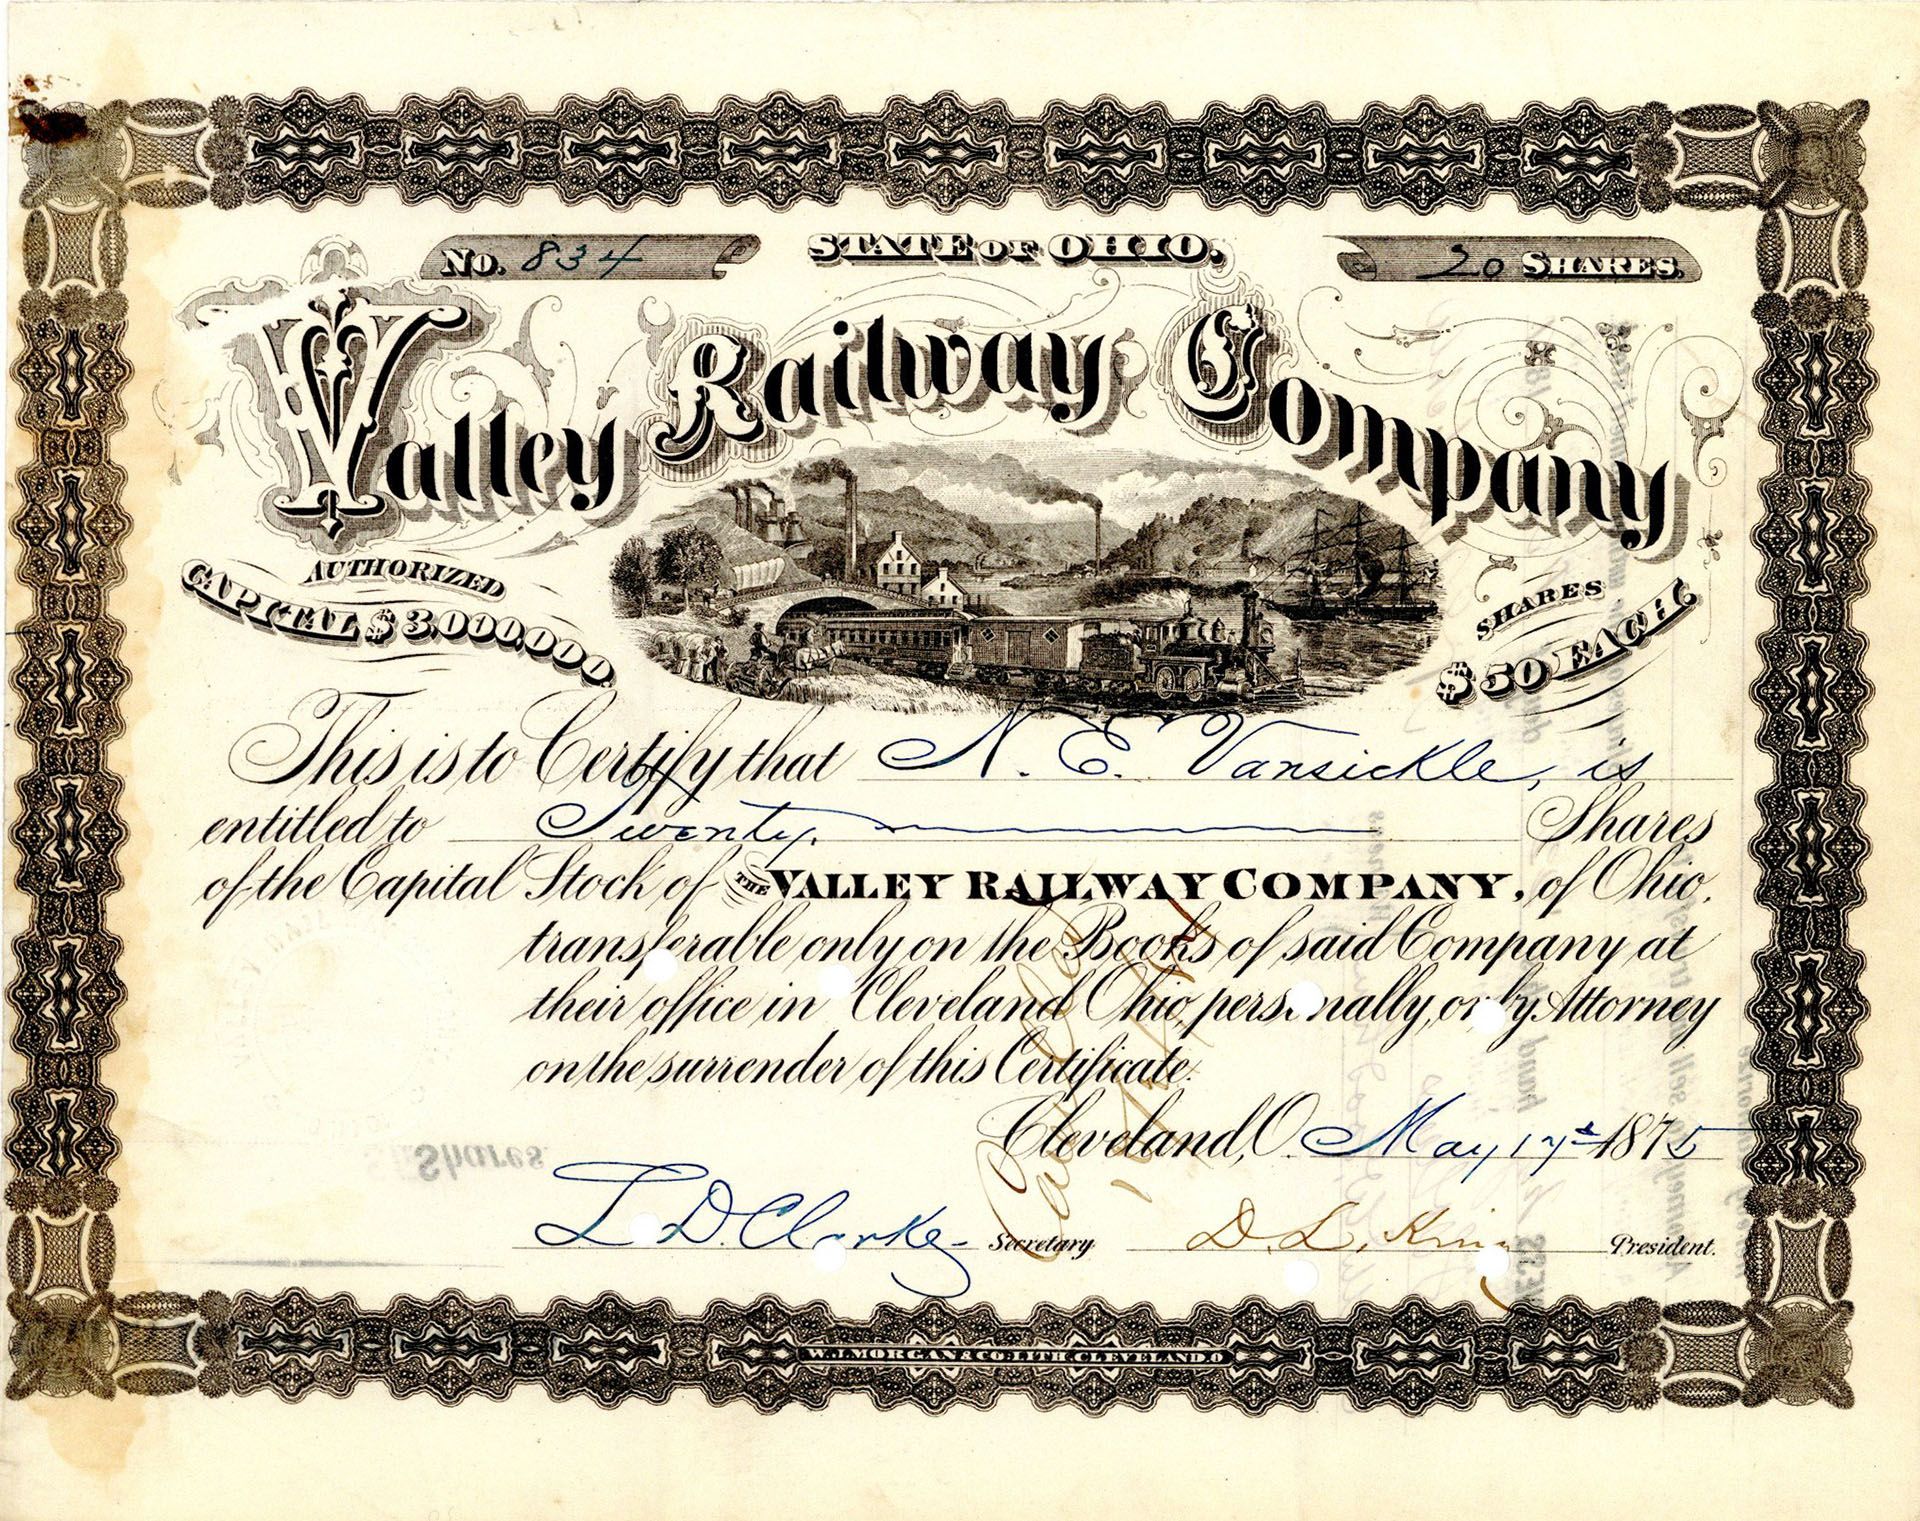 No. 834
STATE OF OHIO,
20 SHARES.
Valley Railway Company
AUTHORIZED
CAPITAL $3,000,000.
SHARES
$50 EACH.
This is to Certify that N. E. Vansickle, is
entitled to Twenty. Shares
of the Capital Stock of THE VALLEY RAILWAY COMPANY, of Ohio,
transferable only on the Books of said Company at
their office in Cleveland Ohio, personally, or by Attorney
on the surrender of this Certificate.
Cleveland, O. May 17th 1875
Shares.
L D Clarke Secretary D. L. King President.
W. J. MORGAN & CO. LITH. CLEVELAND. O